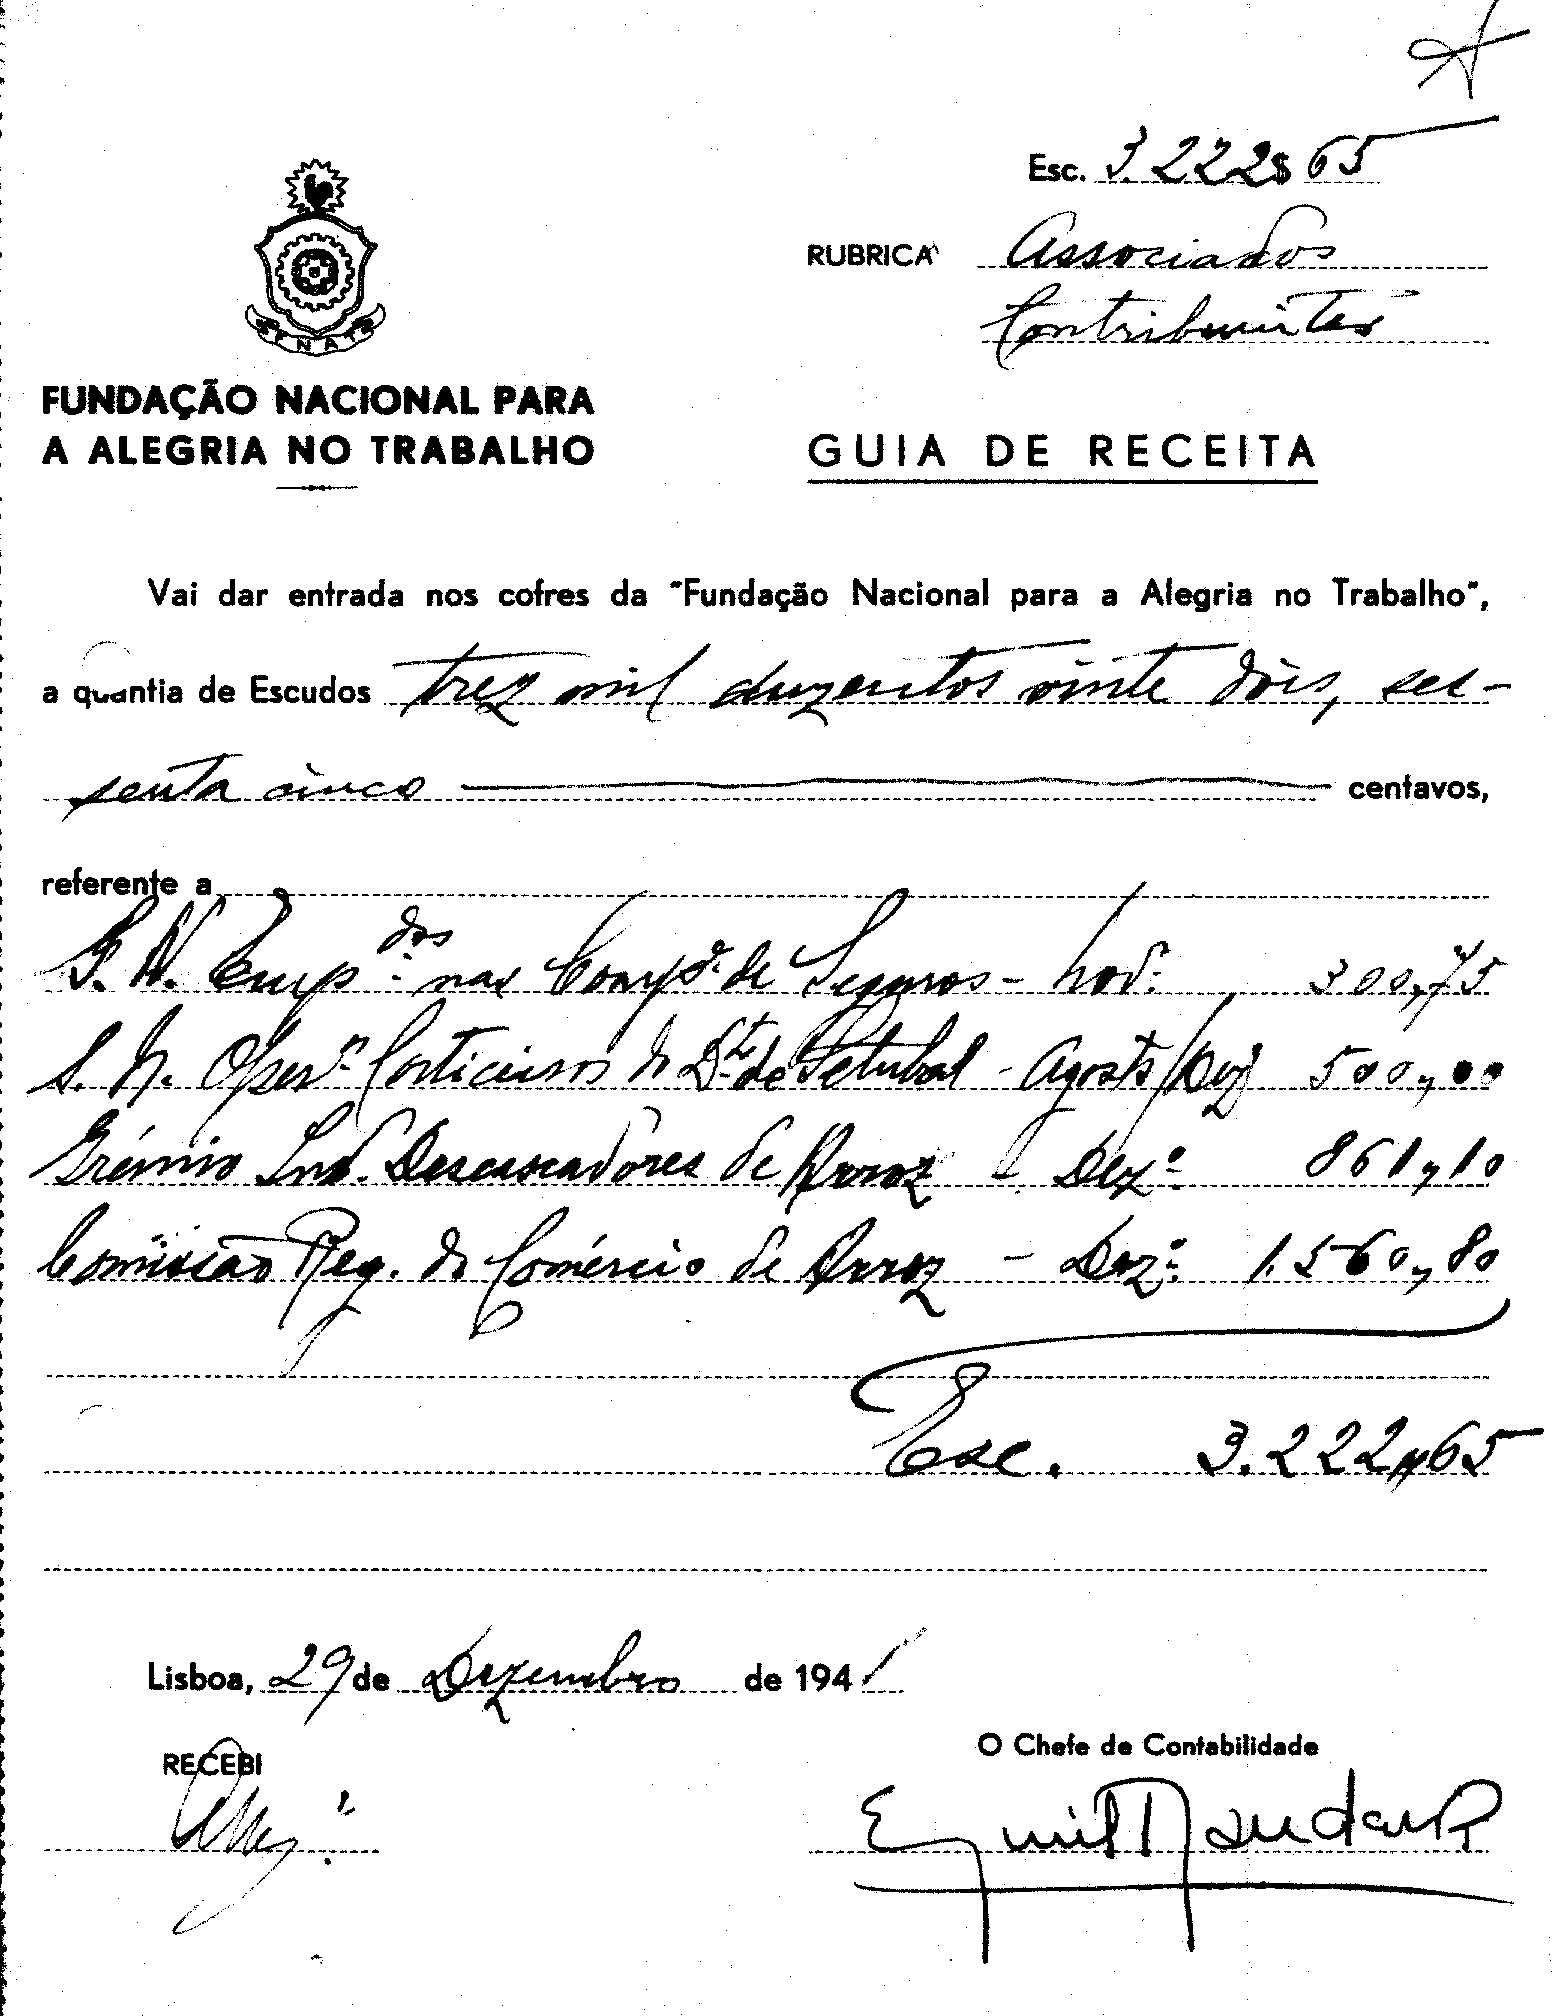 Esc. 3.222$65
RUBRICA Associados
Contribuintes
FNAT
FUNDAÇÃO NACIONAL PARA
A ALEGRIA NO TRABALHO
GUIA DE RECEITA
Vai dar entrada nos cofres da "Fundação Nacional para a Alegria no Trabalho",
a quantia de Escudos trez mil duzentos vinte dois, ses-
senta cinco centavos,
referente a
S. N. Emp.dos nas Comp.as de Seguros - Nov.º 300,75
S. N. Oper.os Corticeiros do D.to de Setubal - Agosto/Dez 500,00
Grémio Ind. Descascadores de Arroz - Dez.º 861,10
Comissão Reg. do Comércio de Arroz - Dez.º 1.560,80
Esc. 3.222,65
Lisboa, 29 de Dezembro de 1941
RECEBI
O Chefe de Contabilidade